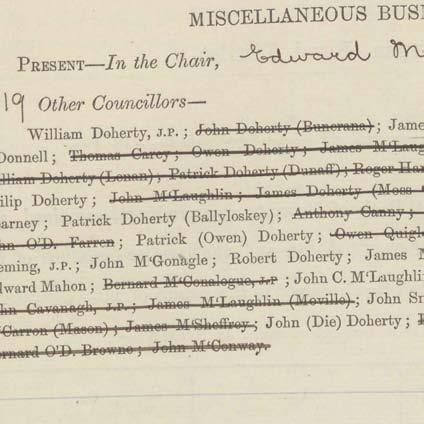 MISCELLANEOUS BUSI
PRESENT—In the Chair, Edward M
19 Other Councillors—
William Doherty, J.P.; John Doherty (Buncrana); Jame
Donnell; Thomas Carey; Owen Doherty; James M'Laug
lliam Doherty (Lenan); Patrick Doherty (Dunaff); Roger Har
ilip Doherty; John M'Laughlin; James Doherty (Moss
arney; Patrick Doherty (Ballyloskey); Anthony Canny;
hn O'D. Farren; Patrick (Owen) Doherty; Owen Quigle
eming, J.P.; John M'Gonagle; Robert Doherty; James M
dward Mahon; Bernard M'Conalogue, J.P; John C. M'Laughlin
hn Cavanagh, J.P.; James M'Laughlin (Moville); John Sm
'Carron (Mason); James M'Sheffrey; John (Die) Doherty;
ernard O'D. Browne; John M'Conway.